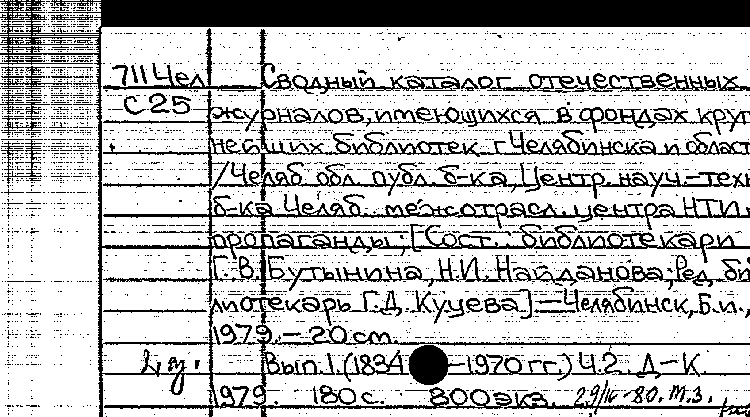 711 Чел Сводный каталог отечественных
С25 журналов, имеющихся в фондах круп
нейших библиотек г. Челябинска и област
/Челяб. обл. публ. б-ка, Центр. науч.-техн
б-ка Челяб. межотрасл. центра НТИ и
пропаганды; [Сост.: библиотекари
Г.В. Бутынина, Н.И. Найданова; Ред. би
лиотекарь Г.Д. Куцева] – Челябинск, Б.и.,
1979. – 20 см.
Вып. 1. (1834 –1970 гг.) Ч.2. Д–К.
1979. 180 с. 800 экз. 29/IV-80. м.з.